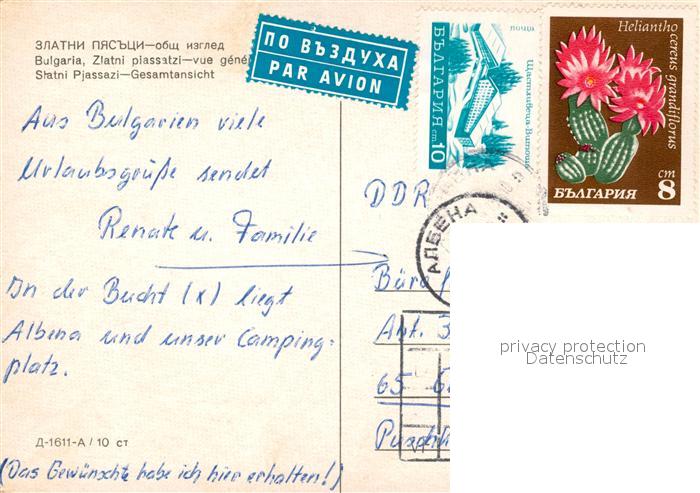 ЗЛАТНИ ПЯСЪЦИ—общ изглед
Bulgaria, Zlatni piassatzi—vue géné
Slatni Pjassazi—Gesamtansicht
ПО ВЪЗДУХА
PAR AVION
поща
Щастливеца Витоша
БЪЛГАРИЯ ст 10
Heliantho
cereus grandiflorus
ст
БЪЛГАРИЯ 8
АЛБЕНА
Aus Bulgarien viele
Urlaubsgrüße sendet
Renate u. Familie
In der Bucht (x) liegt
Albena und unser Camping-
platz.
Д-1611-А / 10 ст
(Das Gewünschte habe ich hier erhalten!)
DDR
Büro
Ant. 3
65
privacy protection
Datenschutz